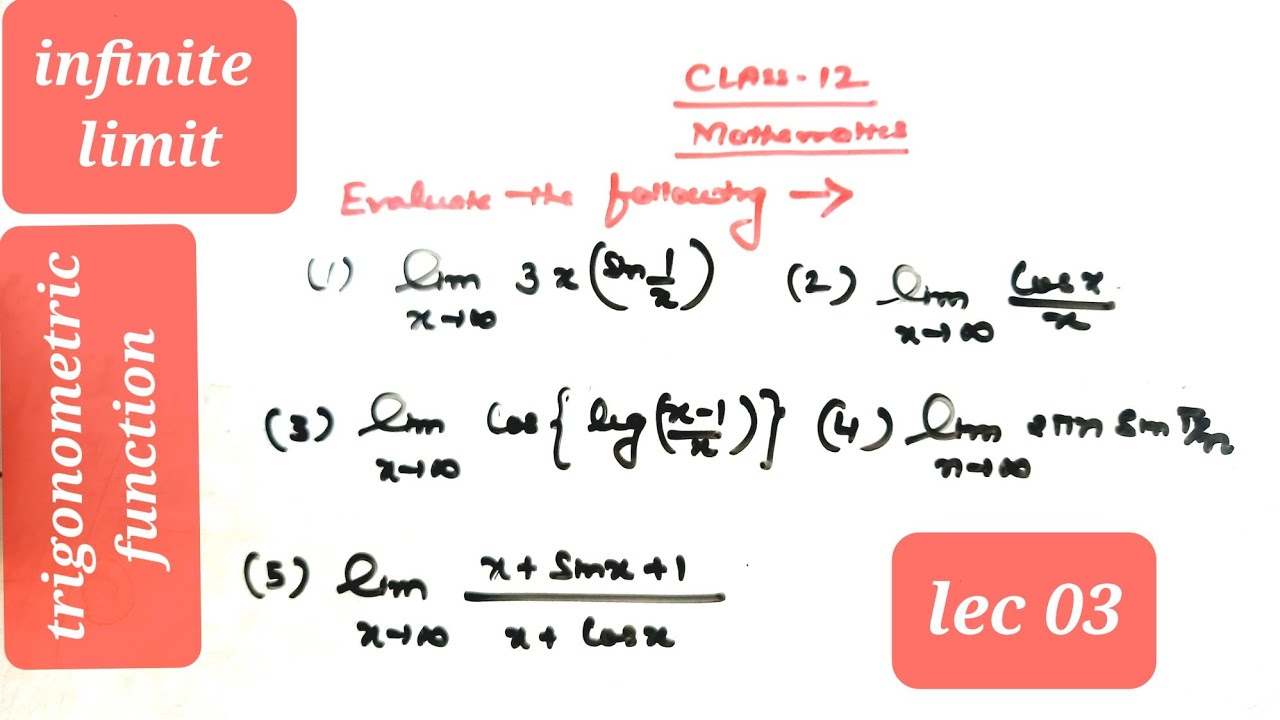 infinite
limit
trigonometric
function
CLASS-12
Mathematics
Evaluate the following →
(1) lim x→∞ 3x(sin 1/x) (2) lim x→∞ cosx/x
(3) lim x→∞ cos{log(x-1/x)} (4) lim n→∞ 2πn sin π/n
(5) lim x→∞ x+sinx+1/x+cosx
lec 03